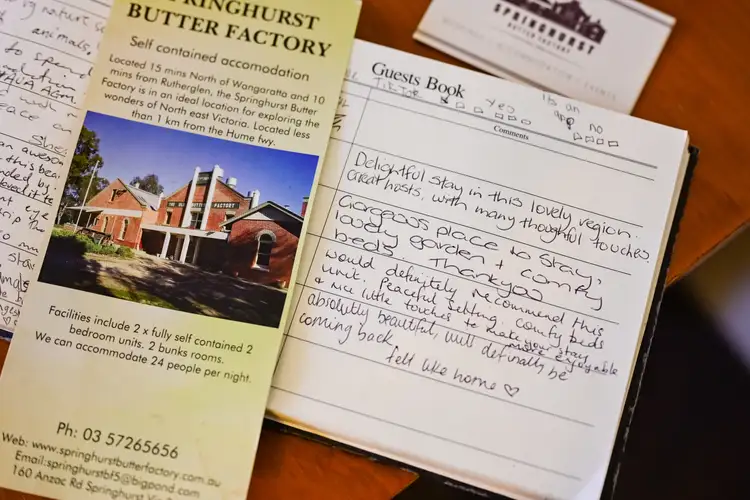 SPRINGHURST
BUTTER FACTORY
Self contained accomodation
Located 15 mins North of Wangaratta and 10
mins from Rutherglen, the Springhurst Butter
Factory is in an ideal location for exploring the
wonders of North east Victoria. Located less
than 1 km from the Hume fwy.
Facilities include 2 x fully self contained 2
bedroom units. 2 bunks rooms.
We can accommodate 24 people per night.
Ph: 03 57265656
Web: www.springhurstbutterfactory.com.au
Email:springhurstbf5@bigpond.com
160 Anzac Rd Springhurst Vic
SPRINGHURST
BUTTER FACTORY
Guests Book
yes
its an
app
no
Comments
Delightful stay in this lovely region.
Great hosts, with many thoughtful touches.
Gorgeous place to stay,
lovely garden + comfy
beds. Thankyou
would definitely recommend this
unit. Peaceful setting, comfy beds
& nice little touches to make your stay
more enjoyable
absolutely beautiful will definally be
coming back
felt like home ♡
nature
animals,
to spend